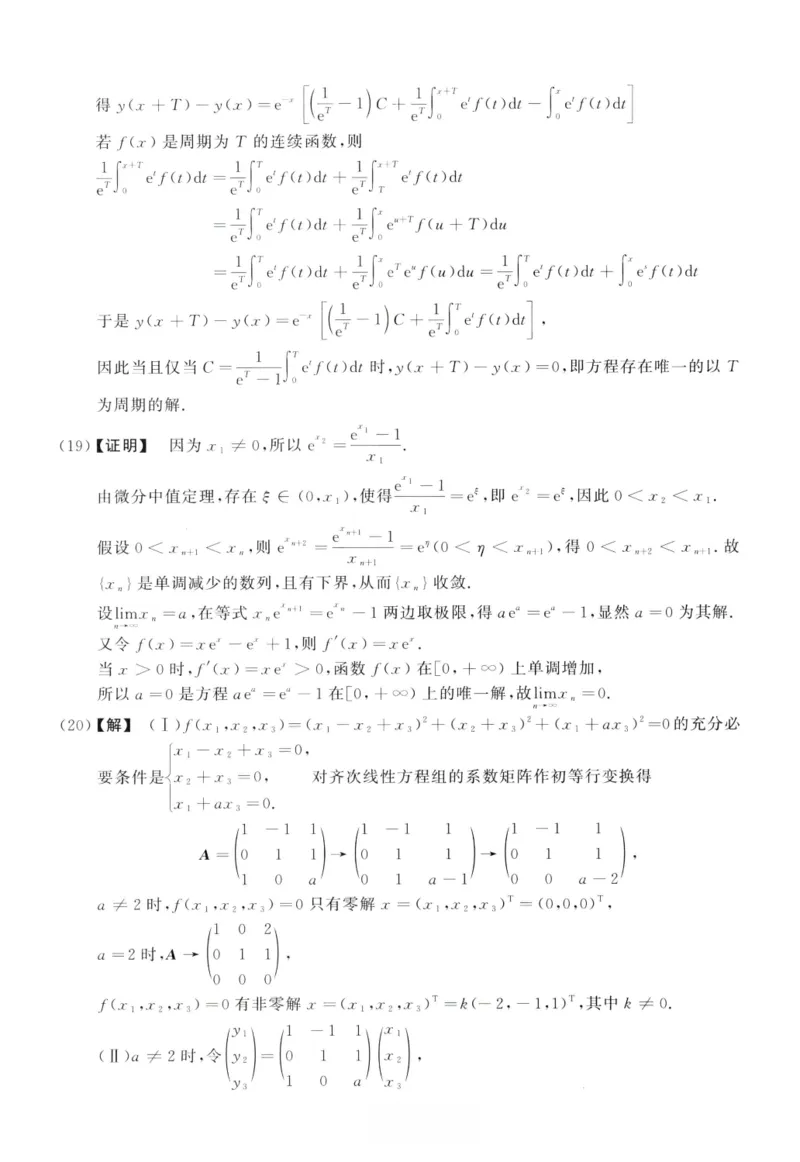 得 y(x+T)-y(x)=e^{-x}[(1/e^T-1)C+1/e^T∫_0^{x+T}e^t f(t)dt-∫_0^x e^t f(t)dt]
若 f(x) 是周期为 T 的连续函数,则
1/e^T∫_0^{x+T}e^t f(t)dt=1/e^T∫_0^T e^t f(t)dt+1/e^T∫_T^{x+T}e^t f(t)dt
=1/e^T∫_0^T e^t f(t)dt+1/e^T∫_0^x e^{u+T}f(u+T)du
=1/e^T∫_0^T e^t f(t)dt+1/e^T∫_0^x e^T e^u f(u)du=1/e^T∫_0^T e^t f(t)dt+∫_0^x e^t f(t)dt
于是 y(x+T)-y(x)=e^{-x}[(1/e^T-1)C+1/e^T∫_0^T e^t f(t)dt],
因此当且仅当 C=1/(e^T-1)∫_0^T e^t f(t)dt 时,y(x+T)-y(x)=0,即方程存在唯一的以 T
为周期的解.
(19)【证明】 因为 x_1≠0,所以 e^{x_2}=(e^{x_1}-1)/x_1.
由微分中值定理,存在 ξ∈(0,x_1),使得(e^{x_1}-1)/x_1=e^ξ,即 e^{x_2}=e^ξ,因此 0<x_2<x_1.
假设 0<x_{n+1}<x_n,则 e^{x_{n+2}}=(e^{x_{n+1}}-1)/x_{n+1}=e^η(0<η<x_{n+1}),得 0<x_{n+2}<x_{n+1}.故
{x_n}是单调减少的数列,且有下界,从而{x_n}收敛.
设lim_{n→∞}x_n=a,在等式 x_n e^{x_{n+1}}=e^{x_n}-1两边取极限,得 ae^a=e^a-1,显然 a=0 为其解.
又令 f(x)=xe^x-e^x+1,则 f′(x)=xe^x.
当 x>0时,f′(x)=xe^x>0,函数 f(x)在[0,+∞)上单调增加,
所以 a=0 是方程 ae^a=e^a-1在[0,+∞)上的唯一解,故lim_{n→∞}x_n=0.
(20)【解】 (Ⅰ)f(x_1,x_2,x_3)=(x_1-x_2+x_3)^2+(x_2+x_3)^2+(x_1+ax_3)^2=0的充分必
要条件是{x_1-x_2+x_3=0, x_2+x_3=0, x_1+ax_3=0. 对齐次线性方程组的系数矩阵作初等行变换得
A=(1 -1 1; 0 1 1; 1 0 a)→(1 -1 1; 0 1 1; 0 1 a-1)→(1 -1 1; 0 1 1; 0 0 a-2),
a≠2时,f(x_1,x_2,x_3)=0只有零解 x=(x_1,x_2,x_3)^T=(0,0,0)^T,
a=2时,A→(1 0 2; 0 1 1; 0 0 0),
f(x_1,x_2,x_3)=0有非零解 x=(x_1,x_2,x_3)^T=k(-2,-1,1)^T,其中 k≠0.
(Ⅱ)a≠2时,令(y_1; y_2; y_3)=(1 -1 1; 0 1 1; 1 0 a)(x_1; x_2; x_3),